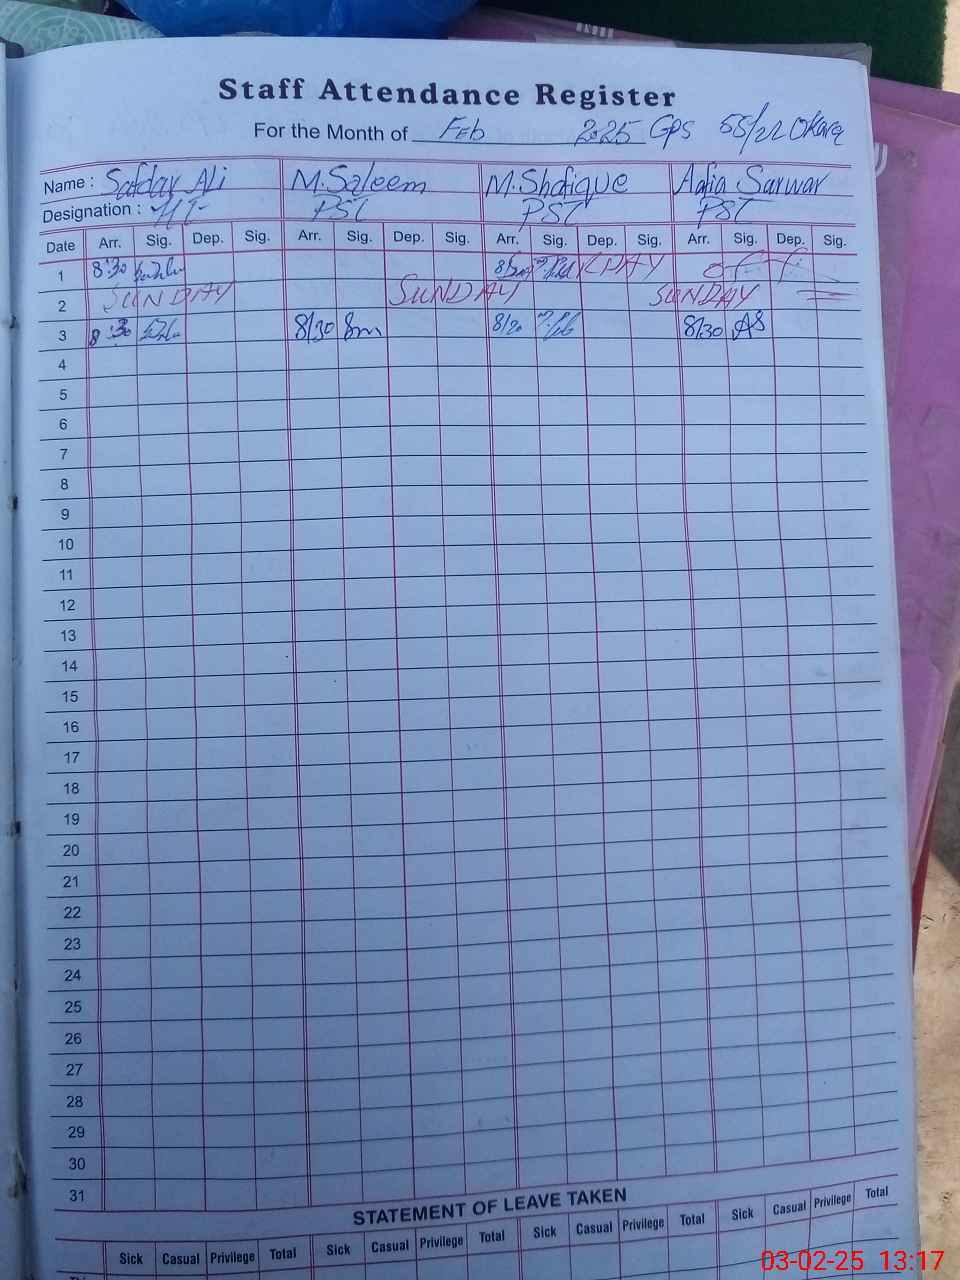 Staff Attendance Register
For the Month of Feb 2025 GPS 55/22 Okara
Name : Safdar Ali M. Saleem M. Shafique Aafia Sarwar
Designation : HT PST PST PST
Date Arr. Sig. Dep. Sig. Arr. Sig. Dep. Sig. Arr. Sig. Dep. Sig. Arr. Sig. Dep. Sig.
1 8:30
2 SUNDAY SUNDAY SUNDAY
3 8:30 8/30 Sm 8/30 AS
4
5
6
7
8
9
10
11
12
13
14
15
16
17
18
19
20
21
22
23
24
25
26
27
28
29
30
31
STATEMENT OF LEAVE TAKEN
Sick Casual Privilege Total Sick Casual Privilege Total Sick Casual Privilege Total Sick Casual Privilege Total
03-02-25 13:17